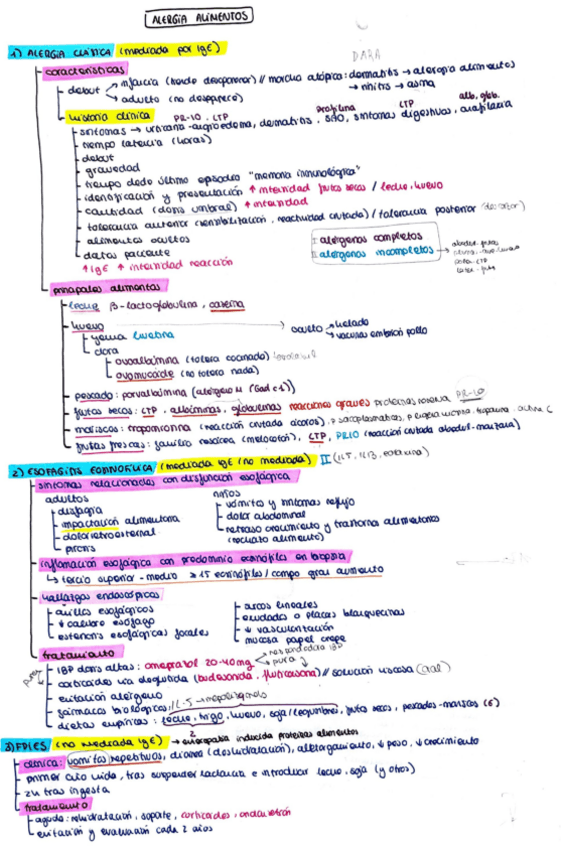 ALERGIA ALIMENTOS
1) ALERGIA CLÁSICA (mediada por IgE)
DARA
características
debut → infancia (tiende desaparecer) // marcha atópica: dermatitis → alergia alimentos
→ adulto (no desaparece) → rinitis → asma
historia clínica PR-10, LTP profilina LTP alb, glob.
síntomas → urticaria-angioedema, dermatitis, SAO, síntomas digestivos, anafilaxia
tiempo latencia (horas)
debut
gravedad
tiempo desde último episodio "memoria inmunológica"
identificación y presentación ↑ intensidad frutos secos / leche, huevo
cantidad (dosis umbral) ↑ intensidad
tolerancia anterior (sensibilización, reactividad cruzada) / tolerancia posterior
alimentos ocultos
datos paciente
↑ IgE ↑ intensidad reacción
alérgenos completos
alérgenos incompletos
principales alimentos
leche β-lactoglobulina, caseína
huevo → oculto → helado
yema livetina → vacunas embrión pollo
clara
ovoalbúmina (tolera cocinado)
ovomucoide (no tolera nada)
pescado: parvalbúmina (alérgeno M (Gad c1))
frutos secos: LTP, albúminas, globulinas reacciones graves proteínas reserva PR-10
mariscos: tropomiosina (reacción cruzada ácaros)
frutas frescas: familia rosácea (melocotón), LTP, PR10 (reacción cruzada abedul-manzana)
2) ESOFAGITIS EOSINOFÍLICA (mediada IgE / no mediada) II (IL5, IL13, eotaxina)
síntomas relacionados con disfunción esofágica
adultos niños
disfagia vómitos y síntomas reflujo
impactación alimentaria dolor abdominal
dolor retroesternal retraso crecimiento y trastorno alimentarios
pirosis (rechazo alimento)
inflamación esofágica con predominio eosinófilos en biopsia
↳ tercio superior-medio ≥ 15 eosinófilos / campo gran aumento
hallazgos endoscópicos
anillos esofágicos surcos lineales
↓ calibre esófago exudados o placas blanquecinas
estenosis esofágicas focales ↓ vascularización
mucosa papel crepe
tratamiento
IBP dosis altas: omeprazol 20-40mg
corticoides vía deglutida (budesonida, fluticasona) // solución viscosa (oral)
evitación alérgeno
fármacos biológicos IL-5 → mepolizumab
dietas empíricas: leche, trigo, huevo, soja/legumbres, frutos secos, pescados-marisco (6)
3) FPIES (no mediada IgE) → enteropatía inducida proteínas alimentos
clínica: vómitos repetitivos, diarrea (deshidratación), aletargamiento, ↓ peso, ↓ crecimiento
primer año vida, tras suspender lactancia e introducir leche, soja (y otros)
2h tras ingesta
tratamiento
aguda: rehidratación, soporte, corticoides, ondansetrón
evitación y evaluación cada 2 años